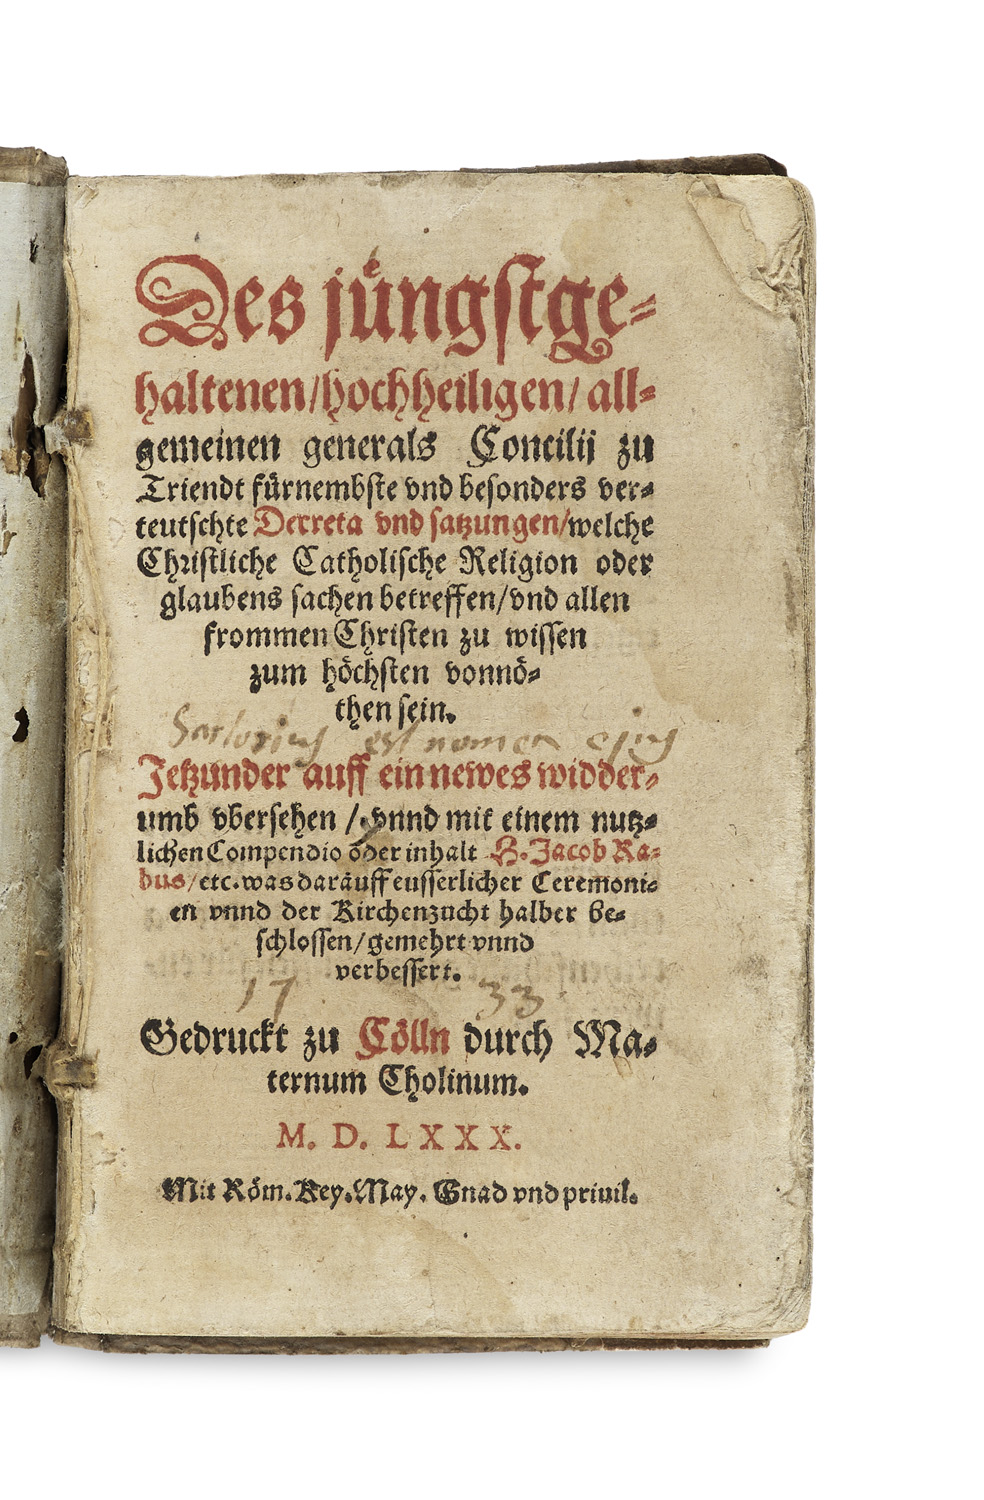 Des jüngstge-
haltenen/hochheiligen/all-
gemeinen generals Concilij zu
Triendt fürnembste vnd besonders ver-
teutschte Decreta vnd satzungen/welche
Christliche Catholische Religion oder
glaubens sachen betreffen/vnd allen
frommen Christen zu wissen
zum höchsten vonnö-
then sein.
Sartorius est nomen ejus
Jetzunder auff ein newes widder-
umb vbersehen / vnnd mit einem nutz-
lichen Compendio oder inhalt H. Jacob Ra-
bus/etc. was darauff eusserlicher Ceremoni-
en vnnd der Kirchenzucht halber be-
schlossen/gemehrt vnnd
verbessert.
17 33
Gedruckt zu Cölln durch Ma-
ternum Cholinum.
M. D. LXXX.
Mit Röm. Key. May. Gnad vnd priuil.